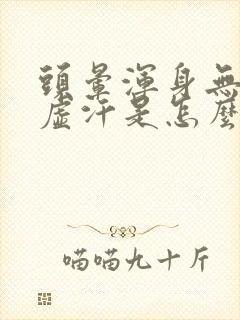 頭暈渾身無
虛汗是怎麼
喵喵九十斤